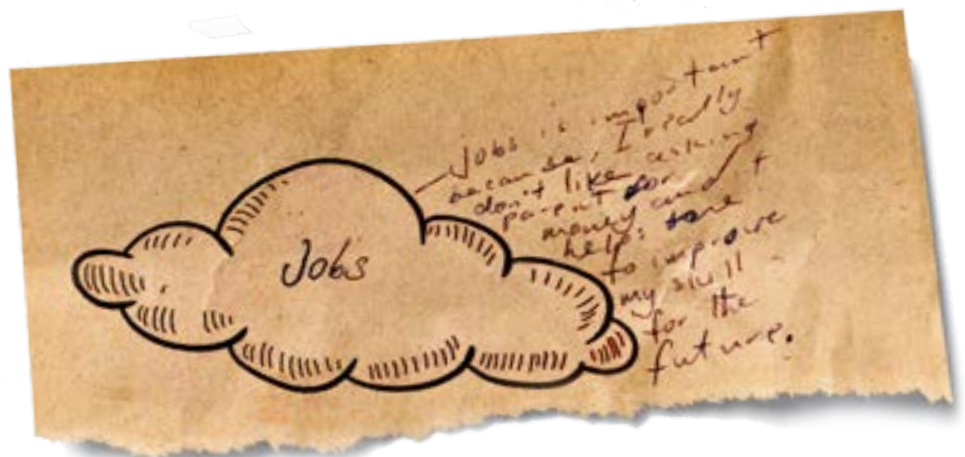 Jobs
Jobs is important
because, I really
don't like asking
parent for
money and
help:
to improve
my skill
for the
future.